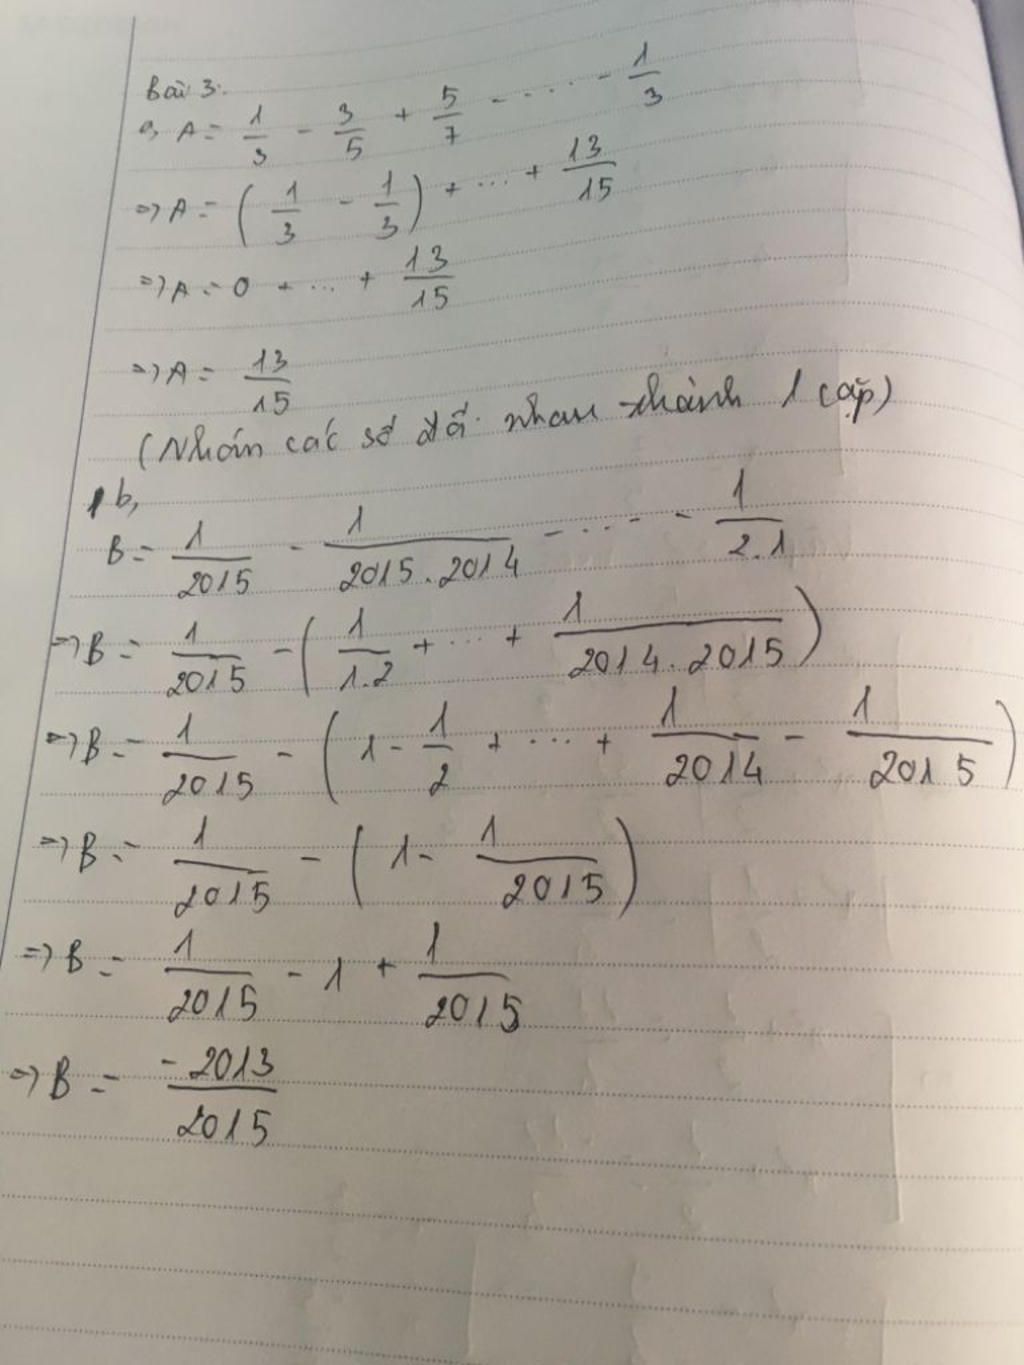 Bài 3:
a, A = 1/3 - 3/5 + 5/7 - ... - 1/3
=> A = (1/3 - 1/3) + ... + 13/15
=> A = 0 + ... + 13/15
=> A = 13/15
(Nhóm các số đối nhau thành 1 cặp)
b,
B = 1/2015 - 1/2015.2014 - ... - 1/2.1
=> B = 1/2015 - (1/1.2 + ... + 1/2014.2015)
=> B = 1/2015 - (1 - 1/2 + ... + 1/2014 - 1/2015)
=> B = 1/2015 - (1 - 1/2015)
=> B = 1/2015 - 1 + 1/2015
=> B = -2013/2015